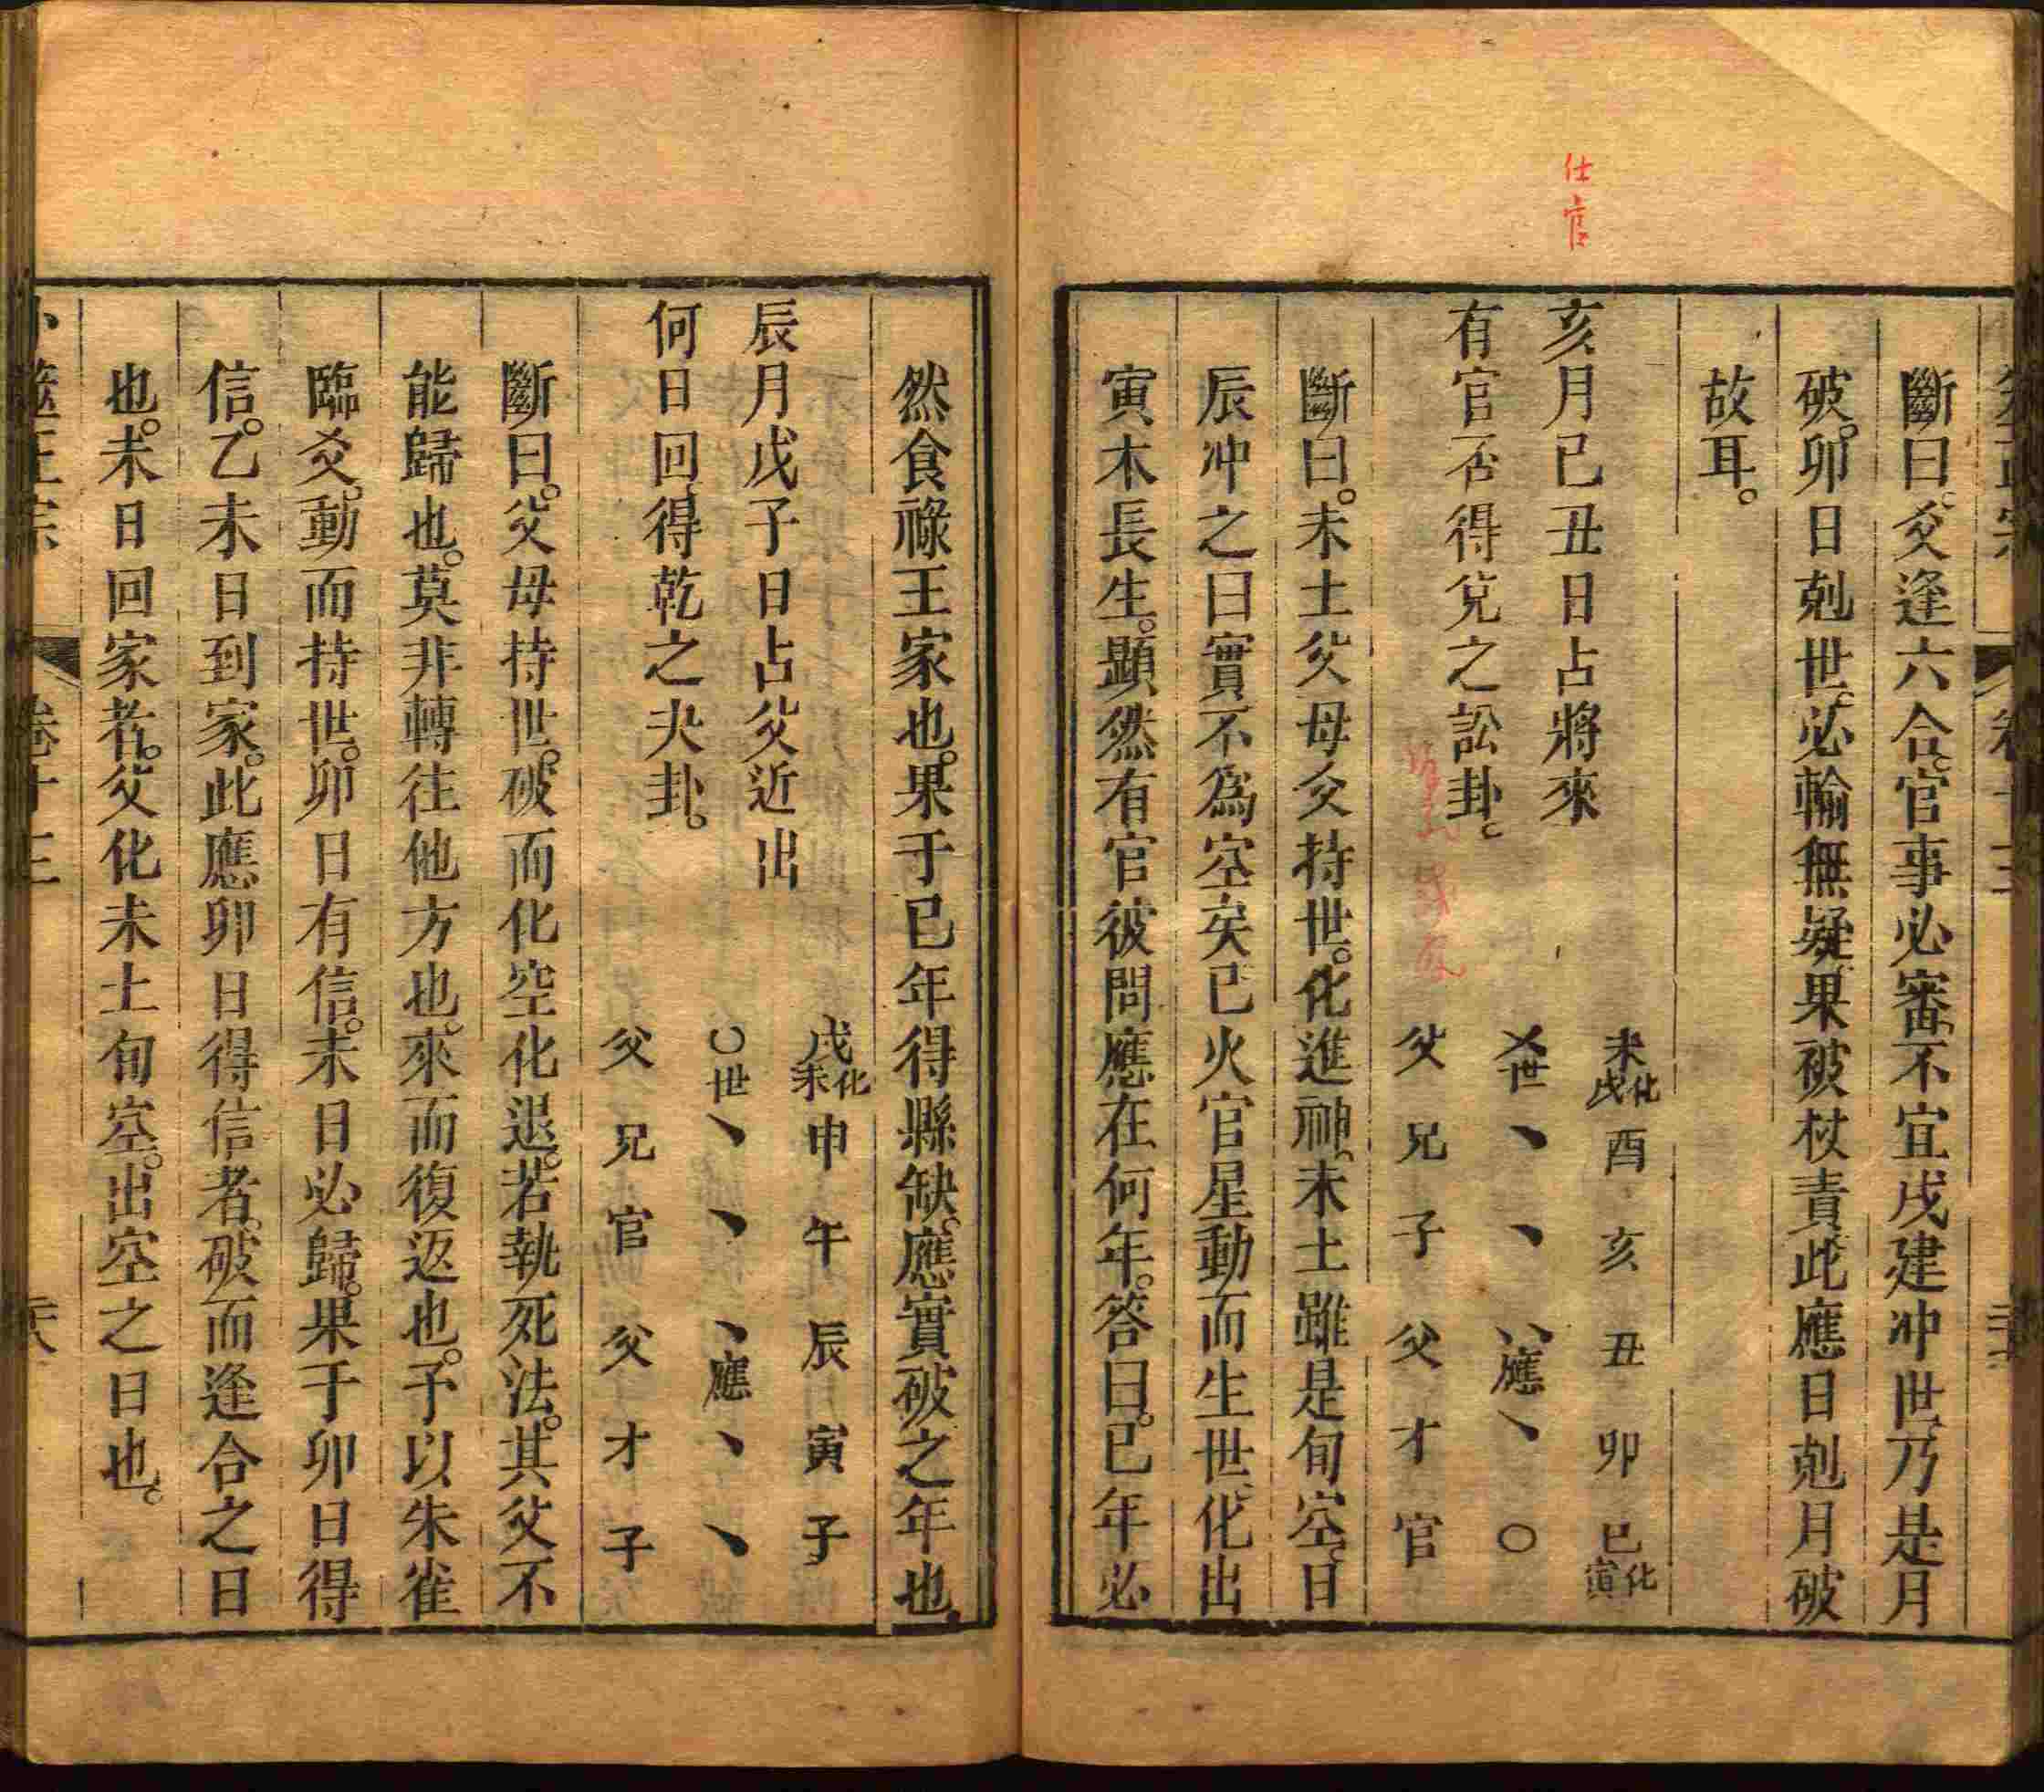 仕官
斷曰爻逢六合官事必審不宜戌建冲世乃是月
破卯日剋世必輸無疑果破杖責此應日剋月破
故耳
亥月己丑日占將來
有官否得兌之訟卦
未化戌 酉 亥 丑 卯 巳化寅
乂世 丶 丶 丷應 丶 〇
父 兄 子 父 才 官
斷曰未土父母爻持世化進神未土雖是旬空日
辰冲之曰實不為空矣巳火官星動而生世化出
寅木長生顯然有官彼問應在何年答曰巳年必
然食祿王家也果于巳年得縣缺應實破之年也
辰月戊子日占父近出
何日回得乾之夬卦
戌化未 申 午 辰 寅 子
〇世 丶 丶 丶應 丶 丶
父 兄 官 父 才 子
斷曰父母持世破而化空化退若執死法其父不
能歸也莫非轉往他方也來而復返也予以朱雀
臨爻動而持世卯日有信未日必歸果于卯日得
信乙未日到家此應卯日得信者破而逢合之日
也未日回家者父化未土旬空出空之日也